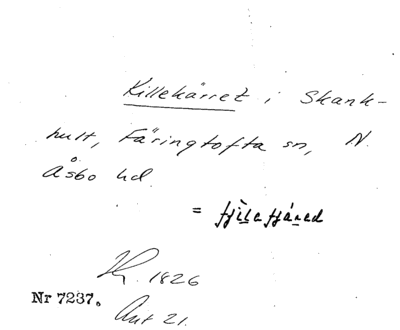 Killekärret i Skank-
hult, Färingtofta sn, N.
Åsbo hd.
= fjìlefjáred
1826
Nr 7237.
Ant 21.